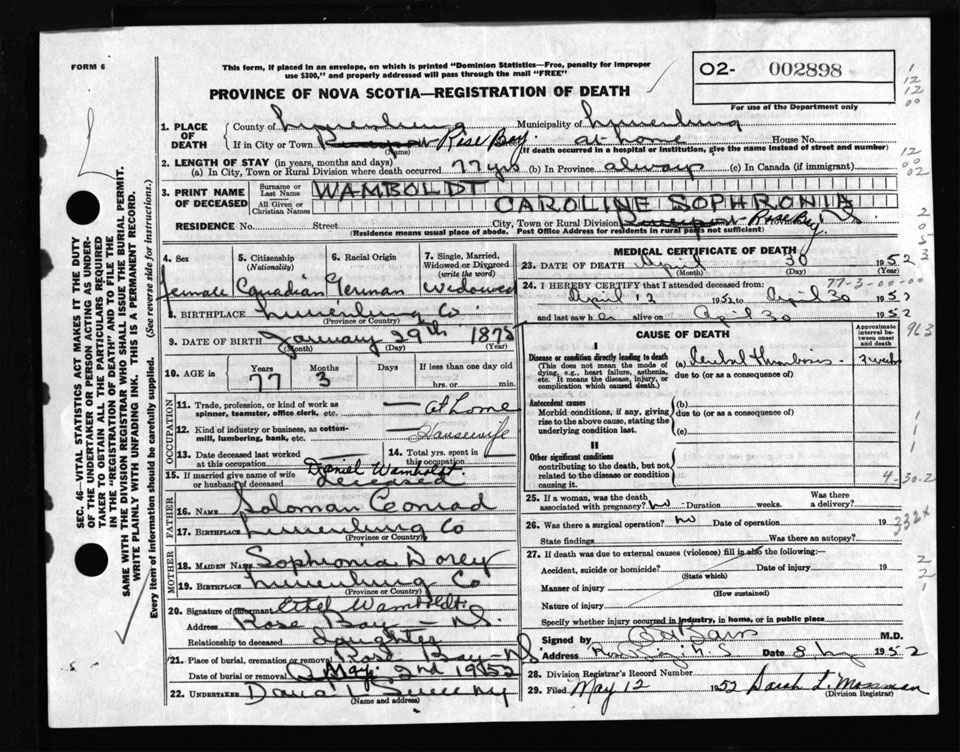 FORM 6
This form, if placed in an envelope, on which is printed "Dominion Statistics—Free, penalty for improper
use $300," and properly addressed will pass through the mail "FREE"
PROVINCE OF NOVA SCOTIA—REGISTRATION OF DEATH
O2- 002898
For use of the Department only
1. PLACE OF DEATH
County of Lunenburg Municipality of Lunenburg
If in City or Town Rose Bay. at home House No.
(Name) (If death occurred in a hospital or institution, give the name instead of street and number)
2. LENGTH OF STAY (in years, months and days)
(a) In City, Town or Rural Division where death occurred 77 yrs (b) In Province always (c) In Canada (if immigrant)
3. PRINT NAME OF DECEASED
Surname or Last Name WAMBOLDT
All Given or Christian Names CAROLINE SOPHRONIA
RESIDENCE No. Street City, Town or Rural Division Rose Bay. Province N S
(Residence means usual place of abode. Post Office Address for residents in rural parts not sufficient)
4. Sex
female
5. Citizenship (Nationality)
Canadian
6. Racial Origin
German
7. Single, Married, Widowed or Divorced (write the word)
widowed
8. BIRTHPLACE Lunenburg Co
(Province or Country)
9. DATE OF BIRTH January 29th 1875
(Month) (Day) (Year)
10. AGE in Years Months Days If less than one day old
77 3 hrs. or min.
OCCUPATION
11. Trade, profession or kind of work as spinner, teamster, office clerk, etc. — at home
12. Kind of industry or business, as cotton-mill, lumbering, bank, etc. — Housewife
13. Date deceased last worked at this occupation
14. Total yrs. spent in this occupation
15. If married give name of wife or husband of deceased Daniel Wamboldt
deceased
FATHER
16. NAME Soloman Conrad
17. BIRTHPLACE Lunenburg Co
(Province or Country)
MOTHER
18. MAIDEN NAME Sophronia Dorey
19. BIRTHPLACE Lunenburg Co
(Province or Country)
20. Signature of informant Ethel Wamboldt
Address Rose Bay — N.S.
Relationship to deceased daughter
21. Place of burial, cremation or removal Rose Bay—NS
Date of burial or removal May 2nd 1952
22. UNDERTAKER Sweeny
(Name and address)
MEDICAL CERTIFICATE OF DEATH
23. DATE OF DEATH April 30 1952
(Month) (Day) (Year)
77-3-00-00
24. I HEREBY CERTIFY that I attended deceased from:
April 12 1952 to April 30 1952
and last saw her alive on April 30 1952
CAUSE OF DEATH
Approximate interval between onset and death
I
Disease or condition directly leading to death
(This does not mean the mode of dying, e.g., heart failure, asthenia, etc. It means the disease, injury, or complication which caused death.)
(a) Cerebral thrombosis
due to (or as a consequence of)
Antecedent causes
Morbid conditions, if any, giving rise to the above cause, stating the underlying condition last.
(b)
due to (or as a consequence of)
(c)
II
Other significant conditions
contributing to the death, but not related to the disease or condition causing it.
4-30-2
25. If a woman, was the death associated with pregnancy? no Duration weeks. Was there a delivery?
26. Was there a surgical operation? no Date of operation 19
State findings Was there an autopsy?
332X
27. If death was due to external causes (violence) fill in also the following:—
Accident, suicide or homicide? Date of injury 19
(State which)
Manner of injury
(How sustained)
Nature of injury
Specify whether injury occurred in industry, in home, or in public place
Signed by M.D.
Address N.S Date 8 May 1952
28. Division Registrar's Record Number
29. Filed May 12 1952 Sarah L. Mossman
(Division Registrar)
SEC. 46—VITAL STATISTICS ACT MAKES IT THE DUTY
OF THE UNDERTAKER OR PERSON ACTING AS UNDER-
TAKER TO OBTAIN ALL THE PARTICULARS REQUIRED
IN THE "REGISTRATION OF DEATH" AND TO FILE THE
SAME WITH THE DIVISION REGISTRAR WHO SHALL ISSUE THE BURIAL PERMIT.
WRITE PLAINLY WITH UNFADING INK. THIS IS A PERMANENT RECORD.
Every item of information should be carefully supplied. (See reverse side for instructions.)